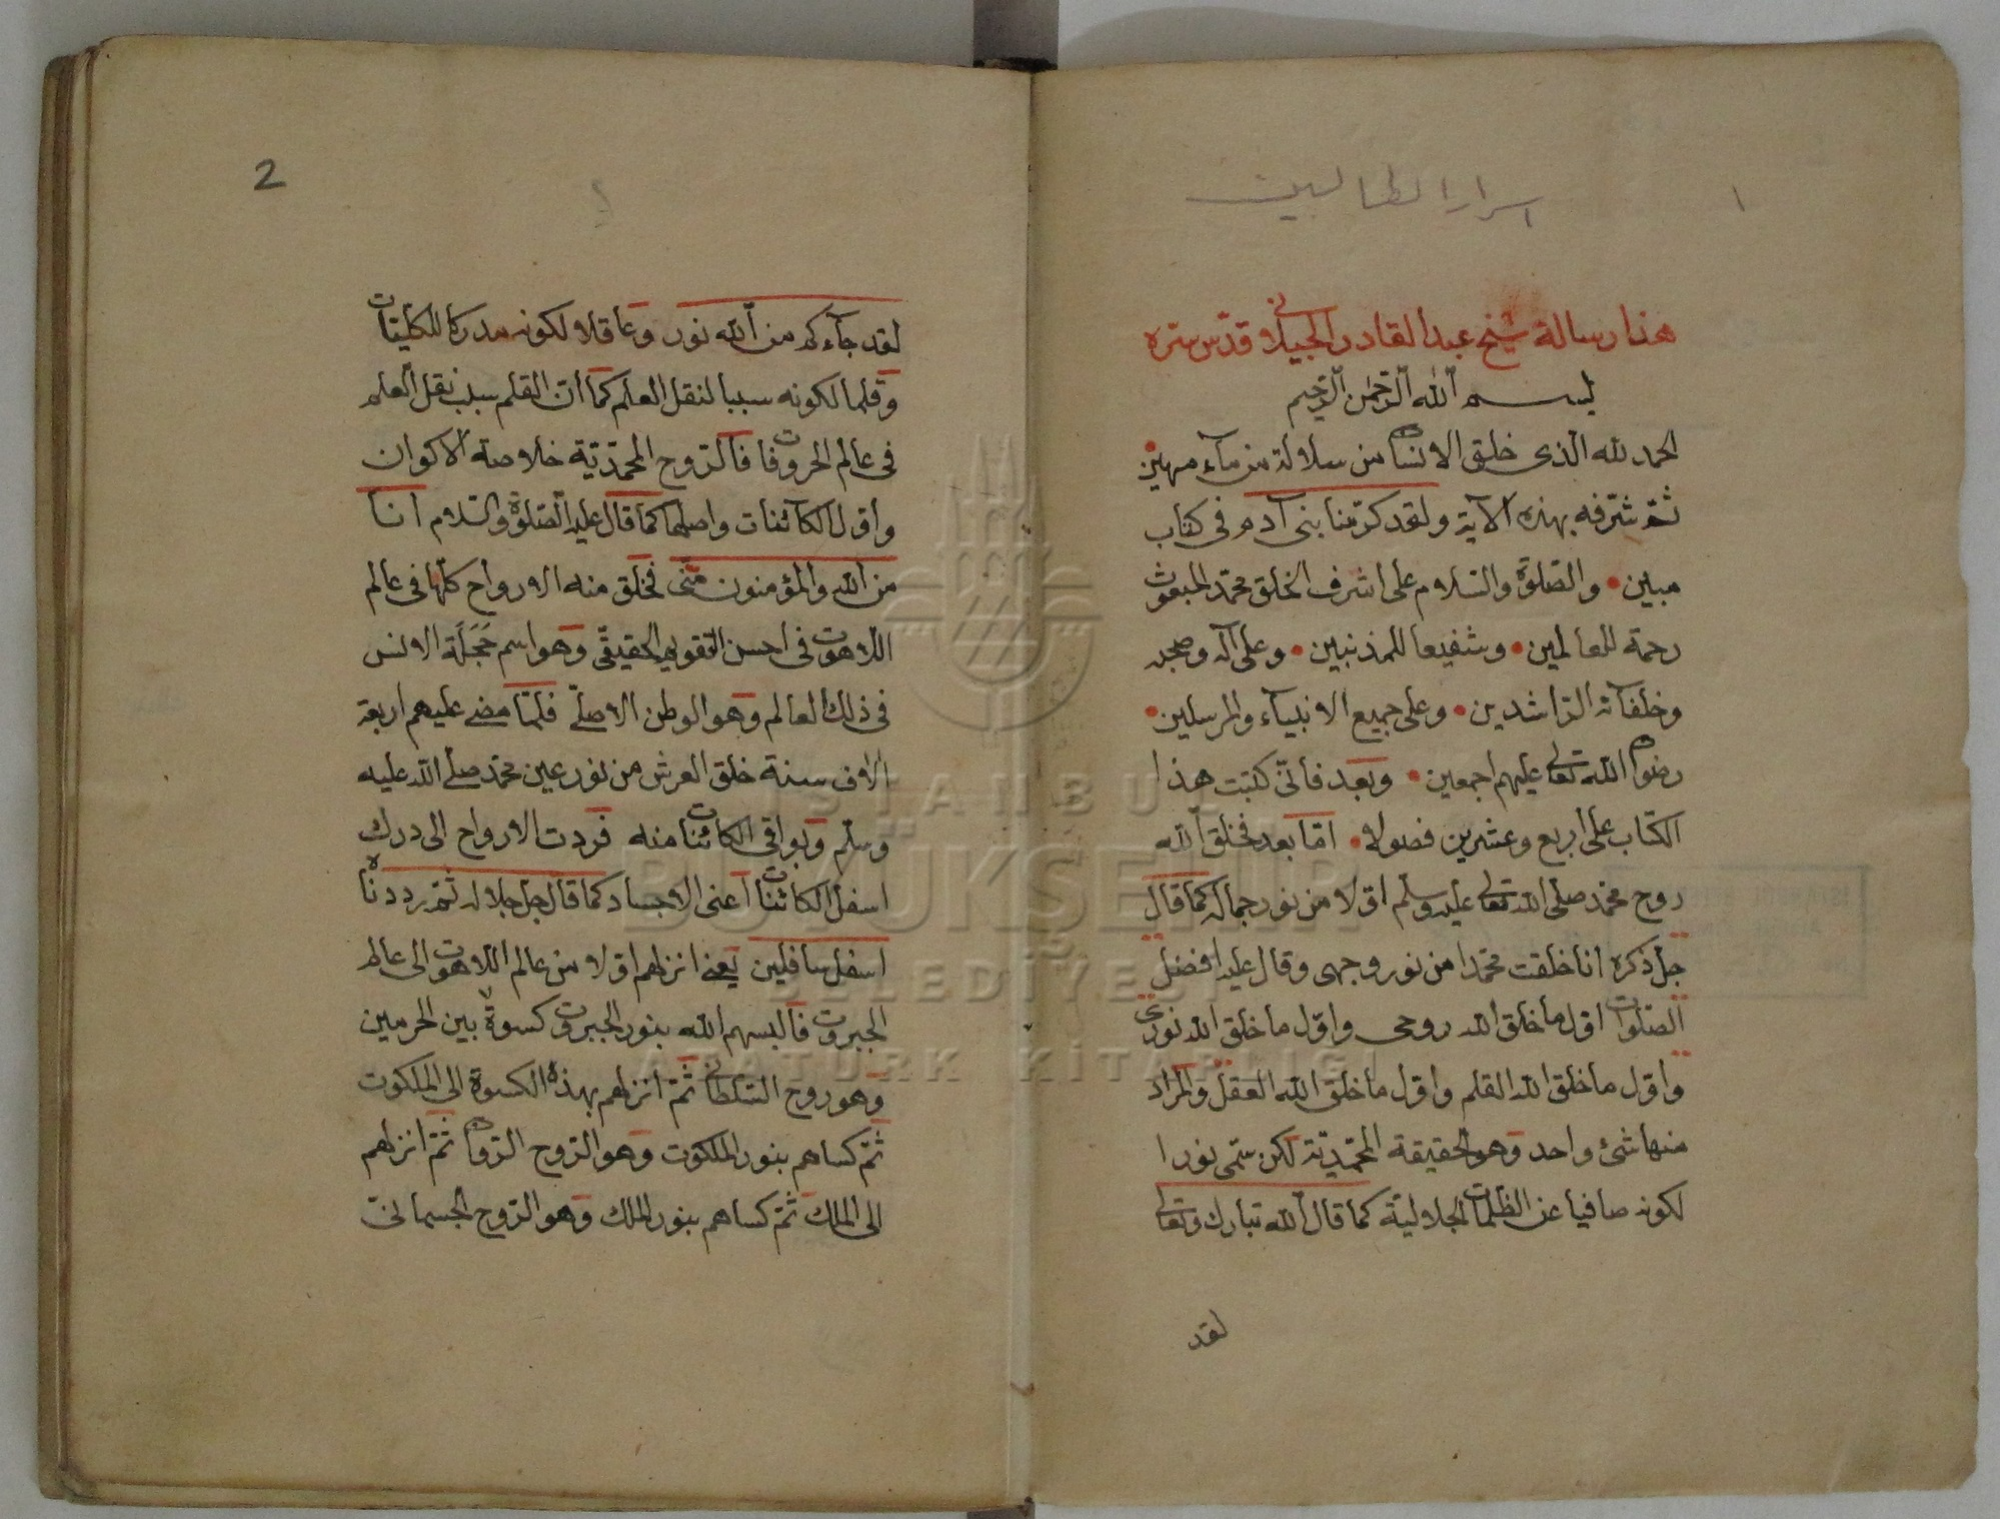 اسرار الطالبين
١
هذا رسالة شيخ عبد القادر الجيلاني قدّس سرّه
بسم الله الرّحمن الرّحيم
الحمد لله الّذى خلق الانسان من سلالة من مآء مهين
ثمّ شرّفه بهذه الآية ولقد كرّمنا بنى آدم فى كتاب
مبين • والصّلوة والسّلام على اشرف الخلق محمّد المبعوث
رحمة للعالمين • وشفيعا للمذنبين • وعلى آله وصحبه
وخلفآئه الرّاشدين • وعلى جميع الانبيآء والمرسلين •
رضوان الله تعالى عليهم اجمعين • وبعد فانّى كتبت هذا
الكتاب على اربع وعشرين فصولا • امّا بعد فخلق الله
روح محمّد صلى الله تعالى عليه وسلّم اوّلا من نور جماله كما قال
جلّ ذكره انا خلقت محمّدا من نور وجهى وقال عليه افضل
الصّلوات اوّل ما خلق الله روحى واوّل ما خلق الله نورى
واوّل ما خلق الله القلم واوّل ما خلق الله العقل والمراد
منها شئ واحد وهو الحقيقة المحمّديّة لكن سمّى نورا
لكونه صافيا عن الظّلمات الجلاليّة كما قال الله تبارك وتعالى
لقد
2
٢
لقد جآءكم من الله نور وعاقلا لكونه مدركا للكلّيّات
وقلما لكونه سببا لنقل العلم كما انّ القلم سبب نقل العلم
فى عالم الحروفات فالرّوح المحمّديّة خلاصة الاكوان
واوّل الكآئنات واصلها كما قال عليه الصّلوة والسّلام انا
من الله والمؤمنون منّى فخلق منه الارواح كلّها فى عالم
اللاهوت فى احسن التقويم الحقيقّى وهو اسم حَجَلَة الانس
فى ذلك العالم وهو الوطن الاصلىّ فلمّا مضى عليهم اربعة
الاف سنة خلق العرش من نور عين محمّد صلّى الله عليه
وسلّم وبواقى الكائنات منه فردت الارواح الى درك
اسفل الكائنات اعنى الاجساد كما قال جلّ جلاله ثمّ رددناه
اسفل سافلين يعنى انزلهم اوّلا من عالم اللاهوت الى عالم
الجبروت فالبسهم الله بنور الجبروت كسوة بين الحرمين
وهو روح السّلطانى ثمّ انزلهم بهذه الكسوة الى الملكوت
ثمّ كساهم بنور الملكوت وهو الرّوح الرّوان ثمّ انزلهم
الى الملك ثمّ كساهم بنور الملك وهو الرّوح الجسمانى
ISTANBUL
BÜYÜKŞEHİR
BELEDİYESİ
ATATÜRK KİTAPLIĞI